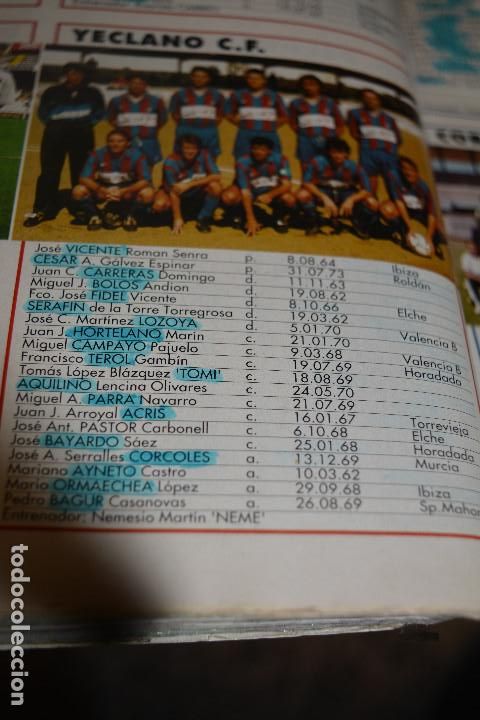 YECLANO C.F.
José VICENTE Roman Senra p. 8.08.64 Ibiza
CESAR A. Gálvez Espinar p. 31.07.73 Roldán
Juan C. CARRERAS Domingo d. 11.11.63
Miguel J. BOLOS Andion d. 19.08.62
Fco. José FIDEL Vicente d. 8.10.66 Elche
SERAFIN de la Torre Torregrosa d. 19.03.62
José C. Martínez LOZOYA d. 5.01.70 Valencia B
Juan J. HORTELANO Marin c. 21.01.70
Miguel CAMPAYO Pajuelo c. 9.03.68 Valencia B
Francisco TEROL Gambín c. 19.07.69 Horadada
Tomás López Blázquez 'TOMI' c. 18.08.69
AQUILINO Lencina Olivares c. 24.05.70
Miguel A. PARRA Navarro c. 21.07.69
Juan J. Arroyal ACRIS c. 16.01.67 Torrevieja
José Ant. PASTOR Carbonell c. 6.10.68 Elche
José BAYARDO Sáez c. 25.01.68 Horadada
José A. Serralles CORCOLES a. 13.12.69 Murcia
Mariano AYNETO Castro a. 10.03.62
Mario ORMAECHEA López a. 29.09.68 Ibiza
Pedro BAGUR Casanovas a. 26.08.69 Sp. Mahon
Entrenador: Nemesio Martín 'NEME'
todocoleccion